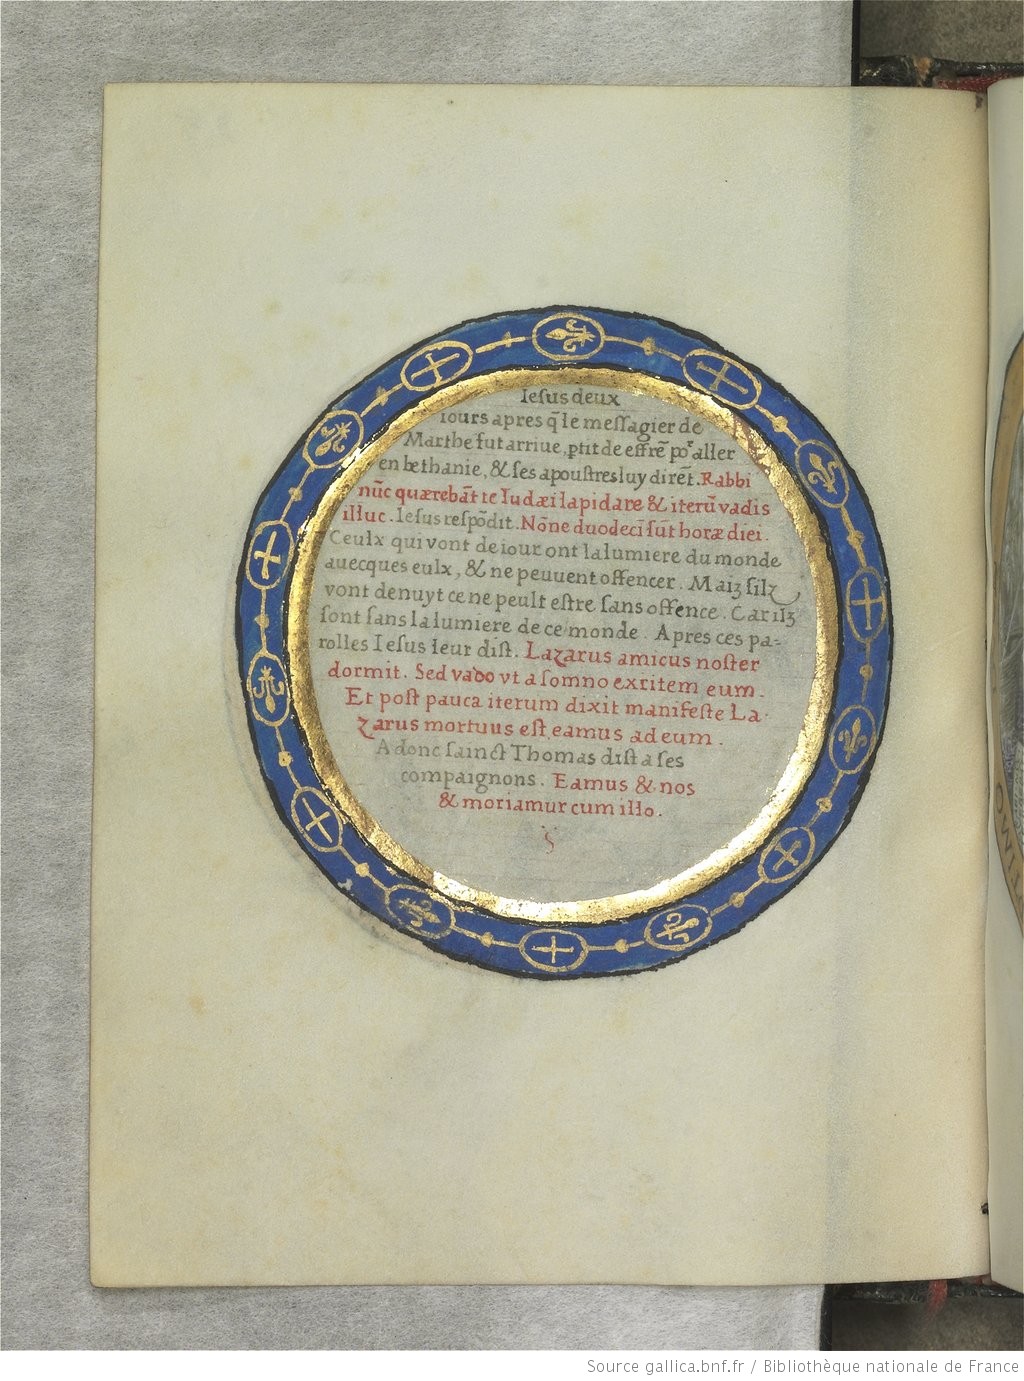 Iesus deux
iours apres q̃ le messagier de
Marthe fut arriue, ptit de effrẽ poʳ aller
en bethanie, & ses apoustres luy dirẽt. Rabbi
nũc quærebãt te Iudæi lapidare & iterũ vadis
illuc. Iesus respõdit. Nõne duodeci sũt horæ diei.
Ceulx qui vont de iour ont la lumiere du monde
auecques eulx, & ne peuuent offencer. Maiz silz
vont de nuyt ce ne peult estre sans offence. Car ilz
sont sans la lumiere de ce monde. Apres ces pa-
rolles Iesus leur dist. Lazarus amicus noster
dormit. Sed vado vt a somno exritem eum.
Et post pauca iterum dixit manifeste La-
zarus mortuus est, eamus ad eum.
Adonc sainct Thomas dist a ses
compaignons. Eamus & nos
& moriamur cum illo.
Source gallica.bnf.fr / Bibliothèque nationale de France